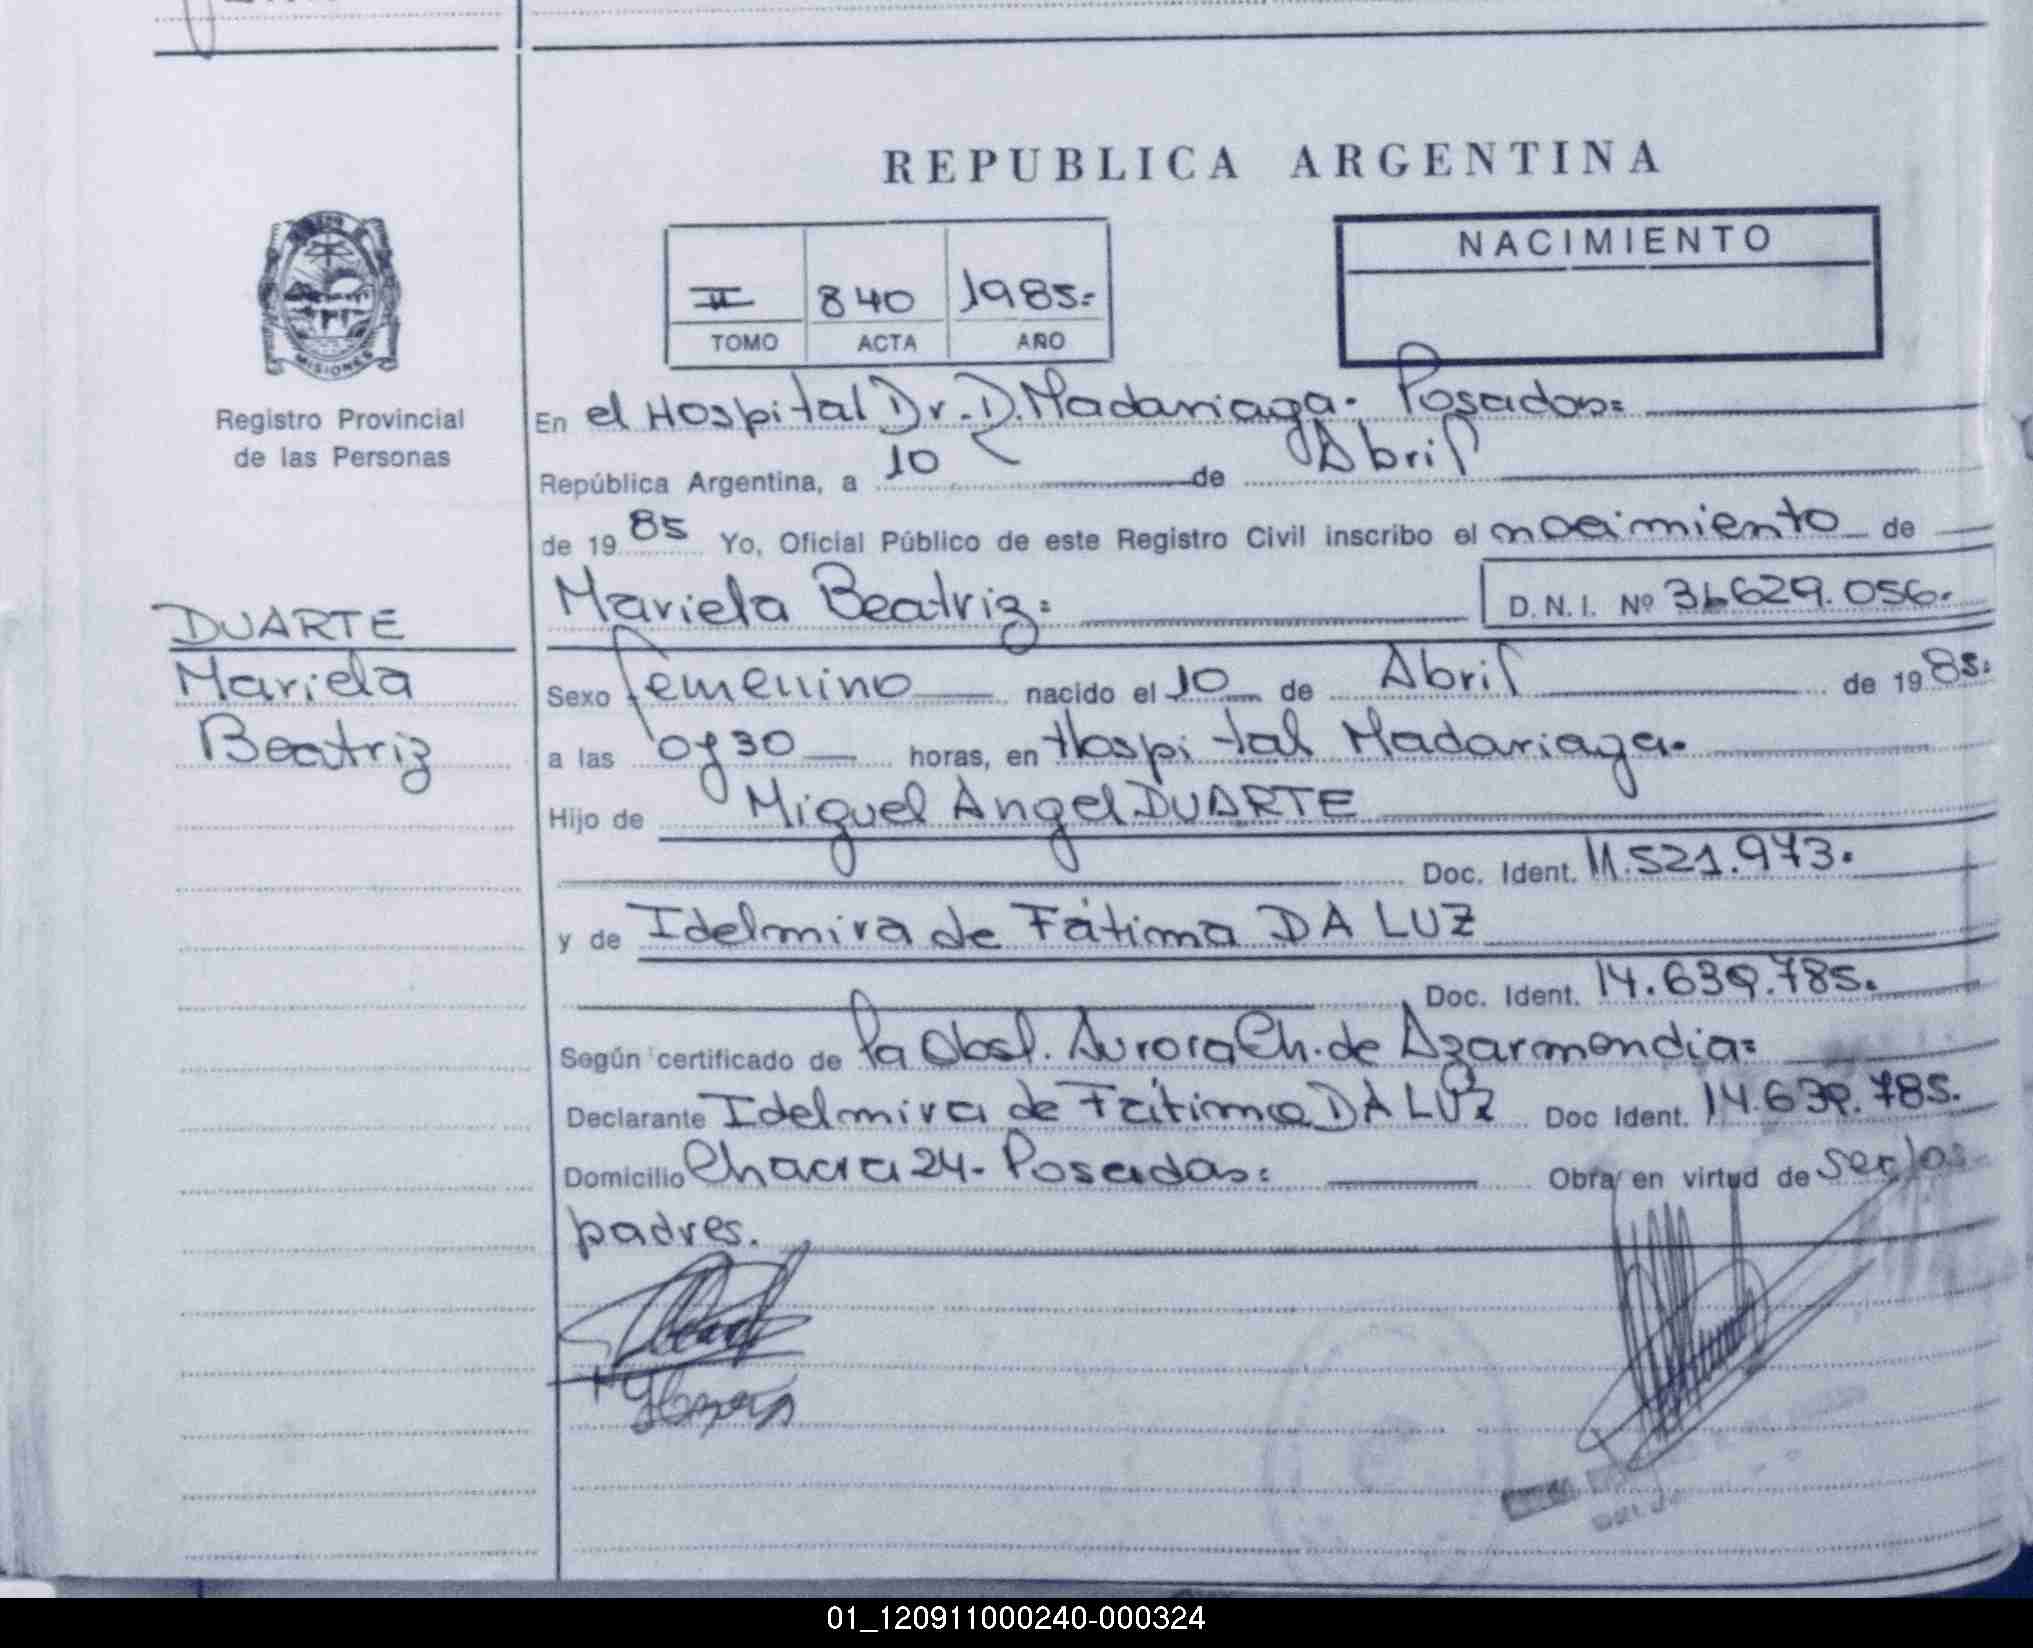 REPUBLICA ARGENTINA
NACIMIENTO
II 840 1985=
TOMO ACTA AÑO
MISIONES
Registro Provincial
de las Personas
DUARTE
Mariela
Beatriz
En el Hospital Dr. D. Madariaga. Posadas=
República Argentina, a 10 de Abril
de 1985 Yo, Oficial Público de este Registro Civil inscribo el nacimiento de
Mariela Beatriz= D.N.I. Nº 31.629.056.
Sexo femenino nacido el 10 de Abril de 1985.
a las 07 30 horas, en Hospital Madariaga.
Hijo de Miguel Angel DUARTE
Doc. Ident. 11.521.973.
y de Idelmira de Fátima DA LUZ
Doc. Ident. 14.639.785.
Según certificado de la Obst. Aurora Ch. de Azarmendia=
Declarante Idelmira de Fátima DA LUZ Doc Ident. 14.639.785.
Domicilio Chacra 24- Posadas= Obra en virtud de ser los
padres.
01_120911000240-000324